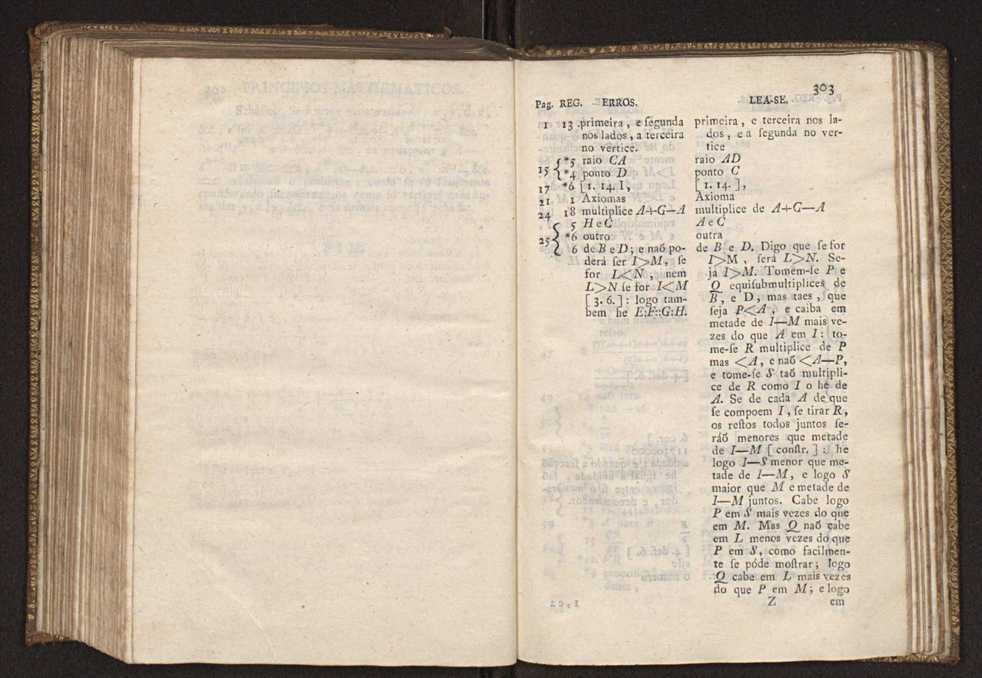 303
Pag. REG. ERROS. LEA-SE.
1 13 .primeira, e ſegunda
nos lados, a terceira
no vertice.
15 { *5 raio CA
*4 ponto D
17 *6 [1. 14. I,
21 1 Axiomas
24 18 multiplice A+G—A
25 { 5 H e C
*6 outro
6 de B e D; e naõ po-
derá ſer I>M, ſe
for L<N, nem
L>N ſe for I<M
[3. 6.]: logo tam-
bem he E:F::G:H.
primeira, e terceira nos la-
dos, e a ſegunda no ver-
tice
raio AD
ponto C
[1. 14.],
Axioma
multiplice de A+G—A
A e C
outra
de B e D. Digo que ſe for
I>M, ſerá L>N. Se-
ja I>M. Tomem-ſe P e
Q equiſubmultiplices de
B, e D, mas taes, que
ſeja P<A, e caiba em
metade de I—M mais ve-
zes do que A em I: to-
me-ſe R multiplice de P
mas <A, e naõ <A—P,
e tome-ſe S taõ multipli-
ce de R como I o he de
A. Se de cada A de que
ſe compoem I, ſe tirar R,
os reſtos todos juntos ſe-
ráõ menores que metade
de I—M [conſtr.]: he
logo I—S menor que me-
tade de I—M, e logo S
maior que M e metade de
I—M juntos. Cabe logo
P em S mais vezes do que
em M. Mas Q naõ cabe
em L menos vezes do que
P em S, como facilmen-
te ſe póde moſtrar; logo
Q cabe em L mais vezes
do que P em M; e logo
Z em